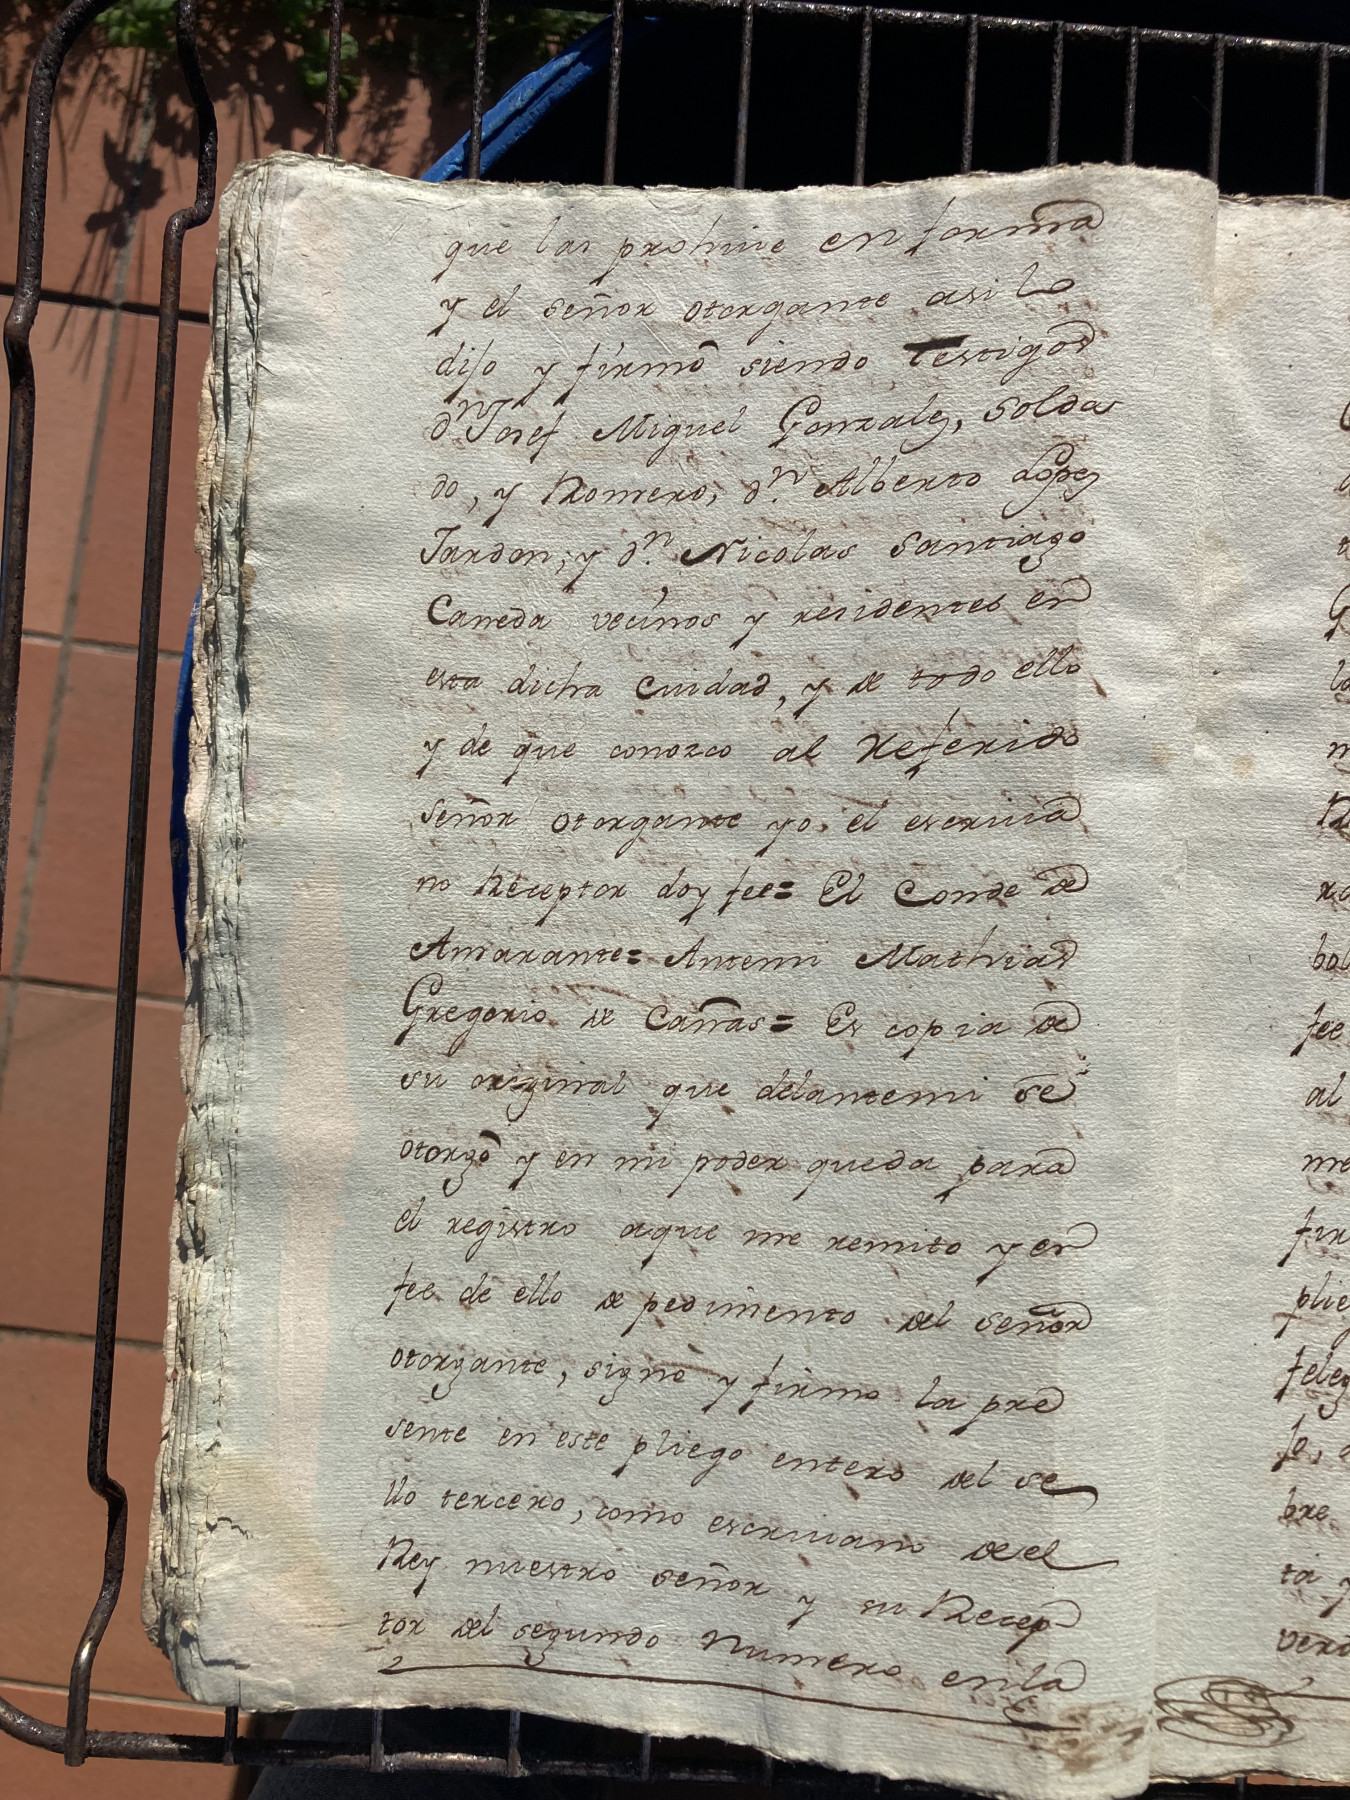 que las prohive en forma
y el señor otorgante asi lo
dijo y firmó siendo testigos
dn Josef Miguel Gonzalez, Solda
do, y Romero, dn. Alberto Lopez
Jardon, y dn. Nicolas Santiago
Caneda vecinos y residentes en
esta dicha Ciudad, y de todo ello
y de que conozco al Referido
señor otorgante yo, el escriva
no Receptor doy fee= El Conde de
Amarante= Antemi Mathias
Gregorio de Cañas= Es copia de
su original que delantemi se
otorgó y en mi poder queda para
el registro aque me remito y en
fee de ello de pedimento del señor
otorgante, signo y firmo la pre
sente en este pliego entero del se
llo tercero, como escrivano de el
Rey nuestro señor y su Recep
tor del segundo Numero en la
G
la
m
R
xo
bol
fee
al
me
fir
plie
feleg
bre
ta y
verd